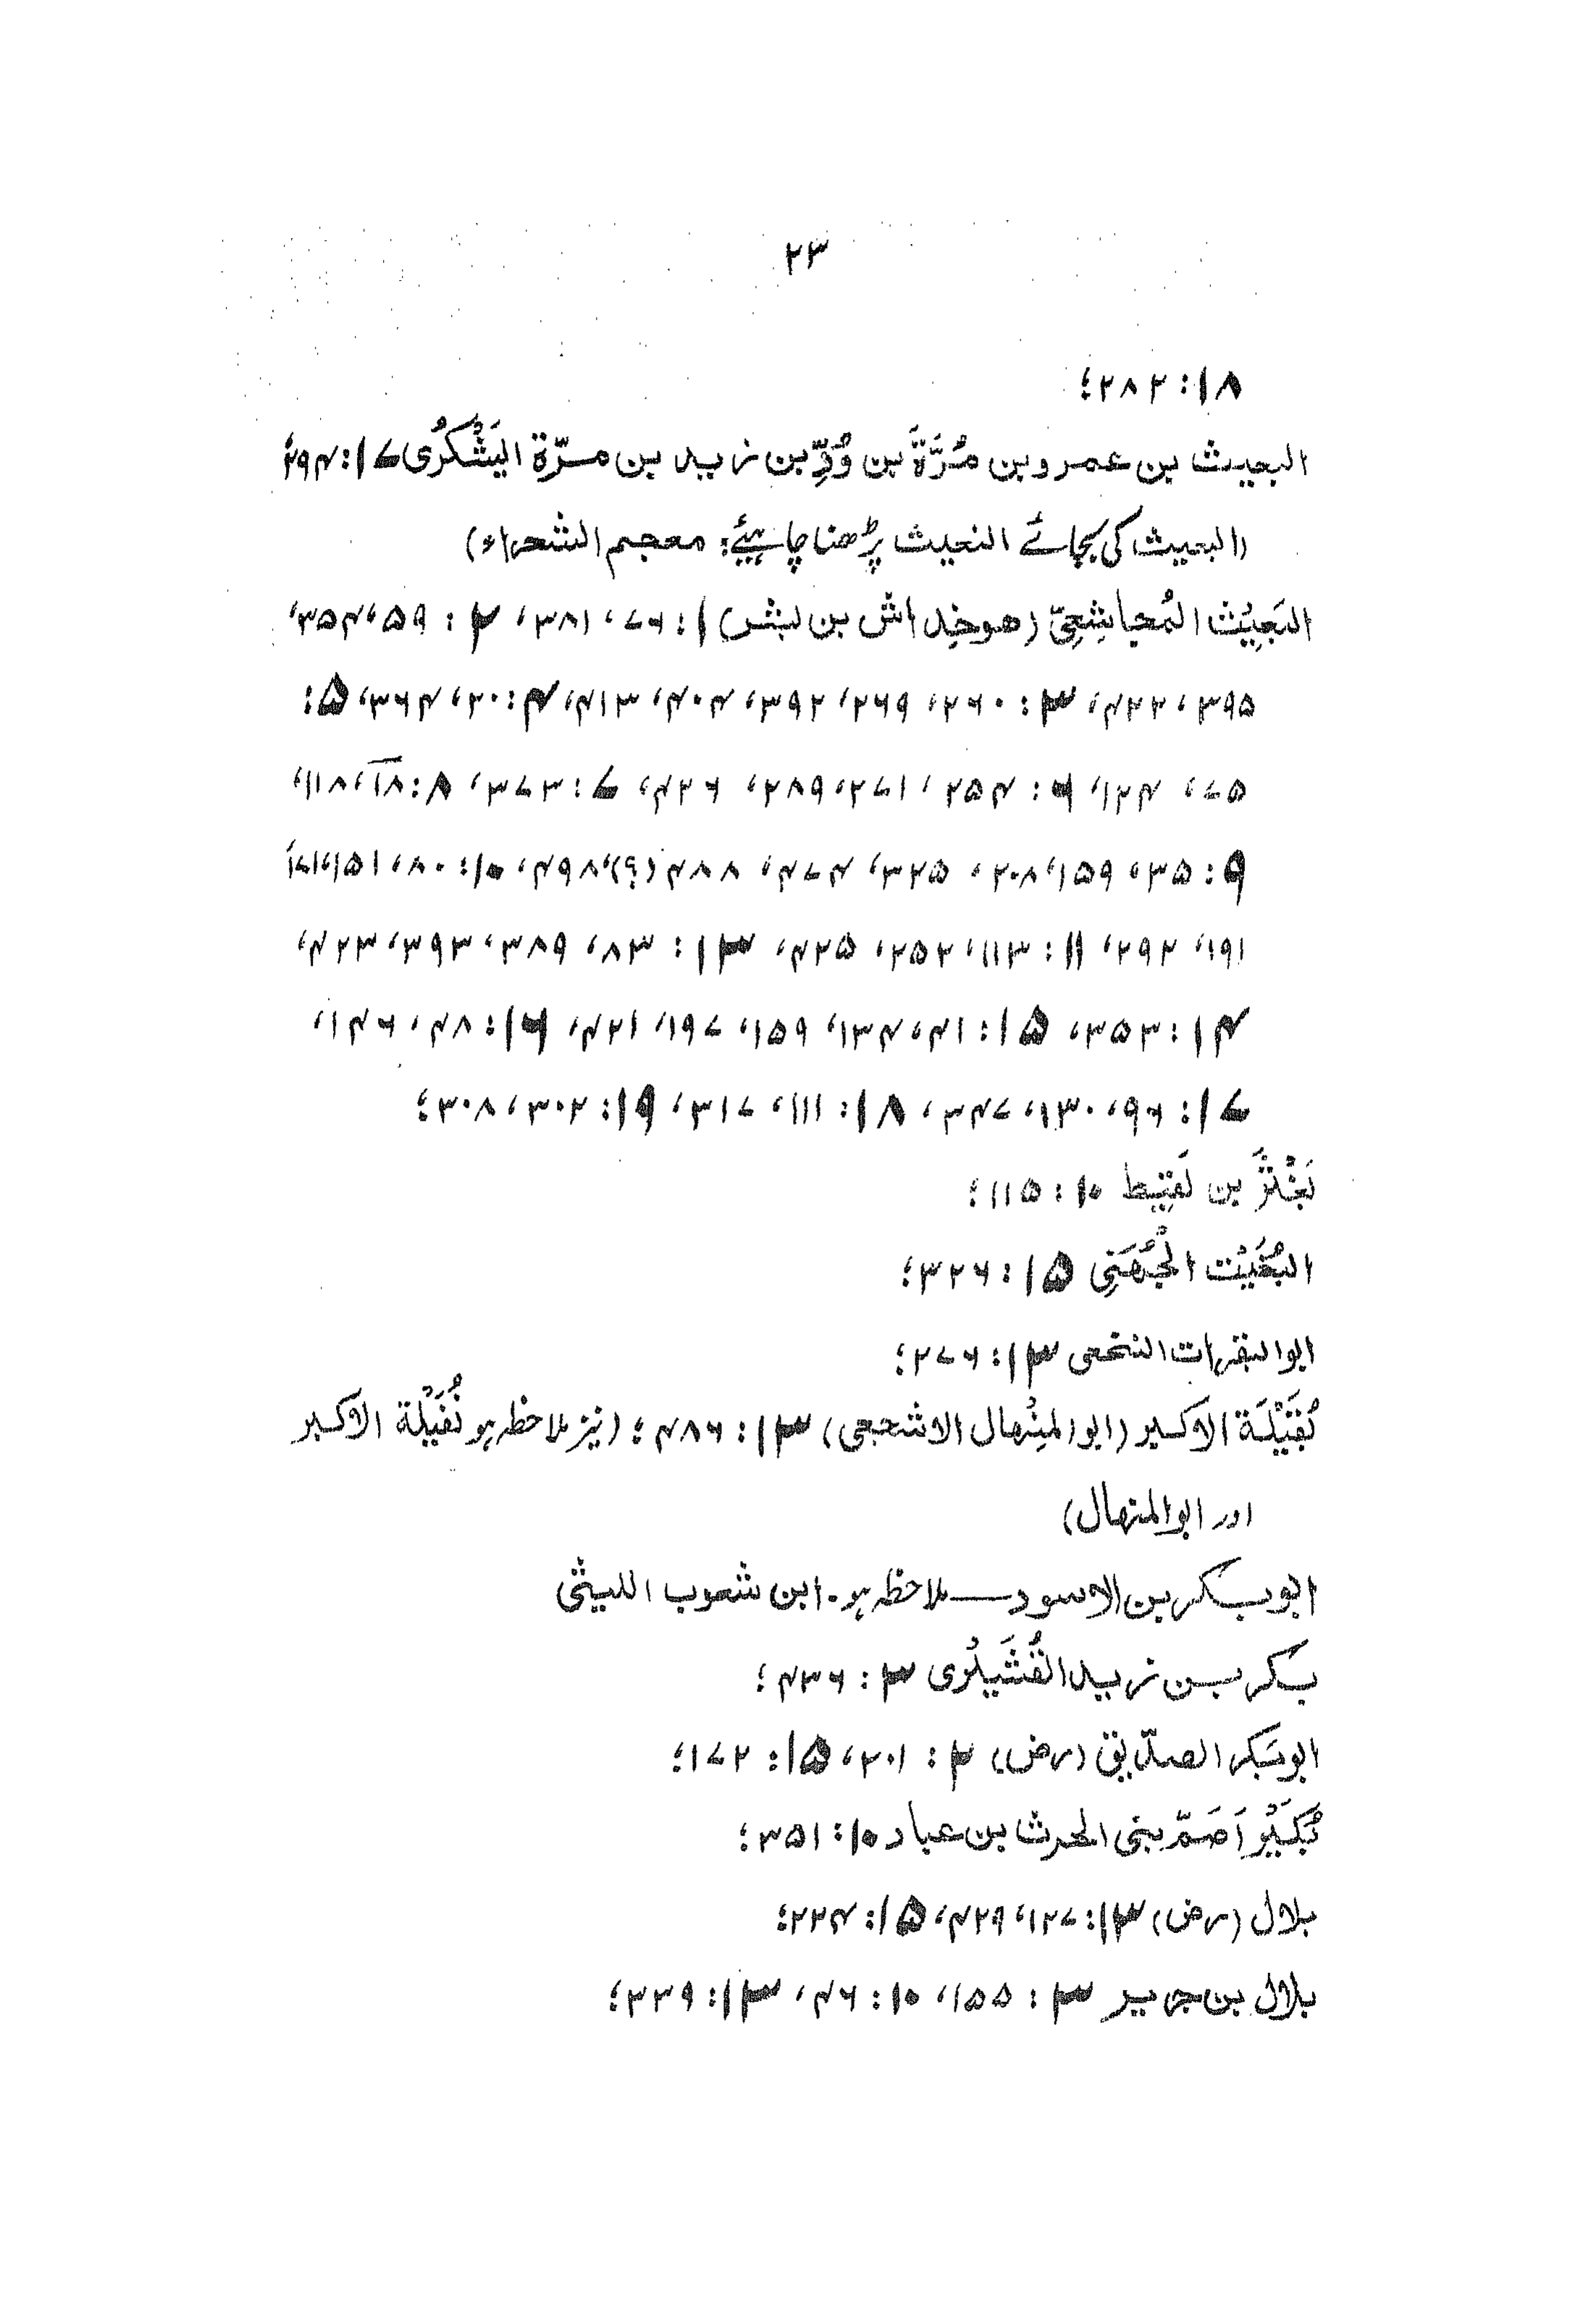 ۲۳
۱۸: ۲۸۲؛
البعیث بن عمرو بن مُرَّةَ بن وُدِّ بن زید بن مرّة الیَشْکُرِی ۱۷: ۲۹۴؛
(البعیث کی بجائے النعیث پڑھنا چاہیئے: معجم الشعراء)
البَعِیْث المُجاشِعِیّ (ھو خِداش بن بشر) ۱: ۷۶، ۳۸۱، ۲: ۵۹، ۳۵۴،
۳۹۵، ۴۲۲، ۳: ۲۶۰، ۲۶۹، ۳۹۲، ۴۰۴، ۴۱۳، ۴: ۲۰، ۳۶۴، ۵:
۷۵، ۱۲۴، ۶: ۲۵۴، ۲۷۱، ۲۸۹، ۴۲۶، ۷: ۳۷۳، ۸: ۱۸، ۱۱۸،
۹: ۳۵، ۱۵۹، ۲۰۸، ۳۲۵، ۴۷۴، ۴۸۸(؟)، ۴۹۸، ۱۰: ۸۰، ۱۵۱، ۱۷۱،
۱۹۱، ۲۹۲، ۱۱: ۱۱۳، ۲۵۲، ۴۲۵، ۱۳: ۸۳، ۳۸۹، ۳۹۳، ۴۲۳،
۱۴: ۳۵۳، ۱۵: ۴۱، ۱۳۴، ۱۵۹، ۱۹۷، ۴۲۱، ۱۶: ۴۸، ۱۴۶،
۱۷: ۹۶، ۱۳۰، ۳۴۷، ۱۸: ۱۱۱، ۳۱۷، ۱۹: ۳۰۲، ۳۰۸؛
بن لَقِیْط ۱۰: ۱۱۵؛
البُخَیْت الجُهَنِی ۱۵: ۳۲۶؛
ابو البقرات النخعی ۱۳: ۲۷۶؛
بُقَیْلَة الاکبر (ابو المِنْهال الاشجعی) ۱۳: ۴۸۶؛ (نیز ملاحظہ ہو نُفَیْلة الاکبر
اور ابو المنهال)
ابو بکر بن الاسود — ملاحظہ ہو۔ ابن شعوب اللیثی
بکر بن زید القُشَیْرِی ۳: ۴۳۶؛
ابو بَکر الصدّیق (رض) ۲: ۲۰۱، ۱۵: ۱۷۲؛
بُکَیْر اَصَمّ بنی الحرث بن عباد ۱۰: ۳۵۱؛
بلال (رض) ۱۳: ۱۲۷، ۴۲۹، ۱۵: ۲۲۴؛
بلال بن جریر ۳: ۱۵۵، ۱۰: ۴۶، ۱۳: ۲۳۹؛